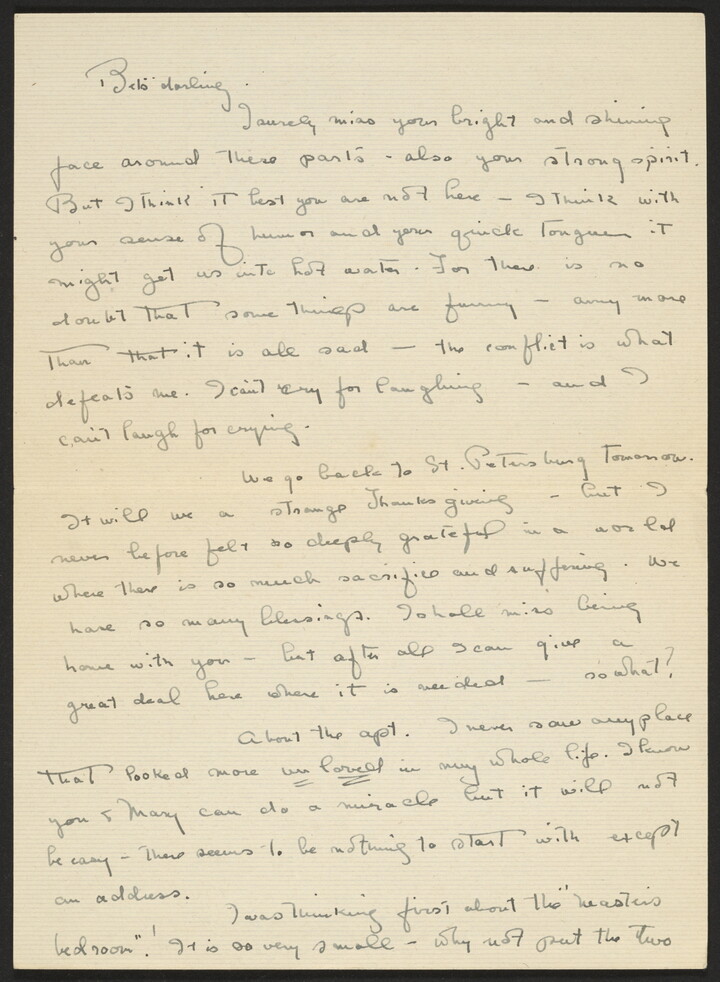 Bets darling.
I surely miss your bright and shining
face around these parts - also your strong spirit.
But I think it best you are not here - I think with
your sense of humor and your quick tongue it
might get us into hot water. For there is no
doubt that some things are funny - any more
than that it is all sad - the conflict is what
defeats me. I can't cry for laughing - and I
can't laugh for crying.
We go back to St. Petersburg tomorrow.
It will be a strange Thanksgiving - but I
never before felt so deeply grateful in a world
where there is so much sacrifice and suffering. We
have so many blessings. I shall miss being
home with you - but after all I can give a
great deal here where it is needed - so what?
About the apt. I never saw any place
that looked more unloved in my whole life. I know
you & Mary can do a miracle but it will not
be easy - there seems to be nothing to start with except
an address.
I was thinking first about the "master's
bedroom"! It is so very small - why not put the two